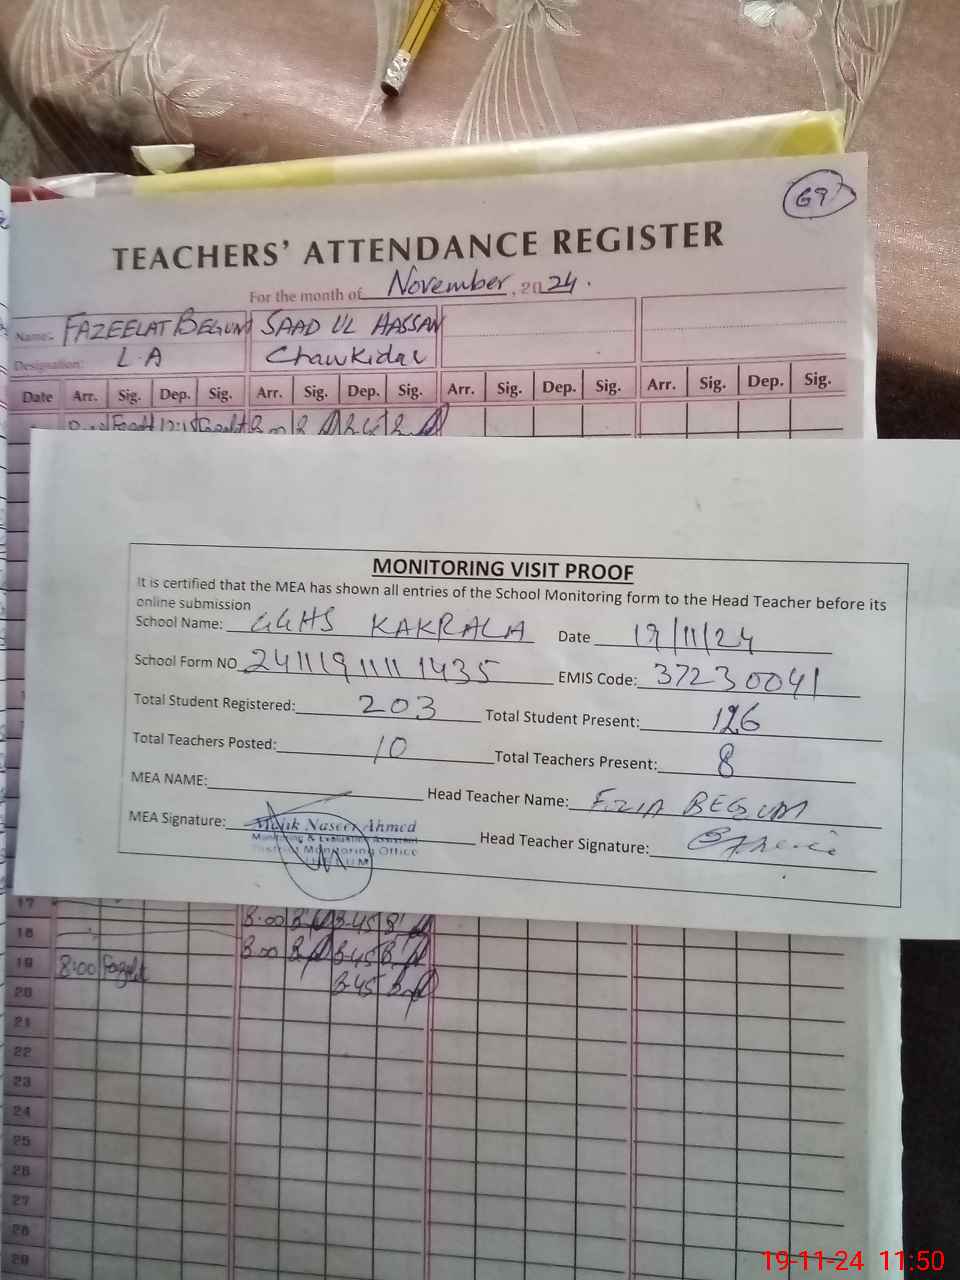 69
TEACHERS' ATTENDANCE REGISTER
For the month of November, 2024.
Name: FAZEELAT BEGUM SAAD UL HASSAN
Designation: L.A Chawkidar
Date Arr. Sig. Dep. Sig. Arr. Sig. Dep. Sig. Arr. Sig. Dep. Sig. Arr. Sig. Dep. Sig.
MONITORING VISIT PROOF
It is certified that the MEA has shown all entries of the School Monitoring form to the Head Teacher before its
online submission
School Name: GGHS KAKRALA Date 19/11/24
School Form NO 24111911111435 EMIS Code: 37230041
Total Student Registered: 203 Total Student Present: 126
Total Teachers Posted: 10 Total Teachers Present: 8
MEA NAME: Head Teacher Name: BEGUM
MEA Signature: Malik Naseer Ahmed Head Teacher Signature:
Monitoring & Evaluation Assistant
District Monitoring Office
17 8:00 8-45
18 8:00 8-45
19 8:00 Fazilt 8-45
20
21
22
23
24
25
26
27
28
29
19-11-24 11:50